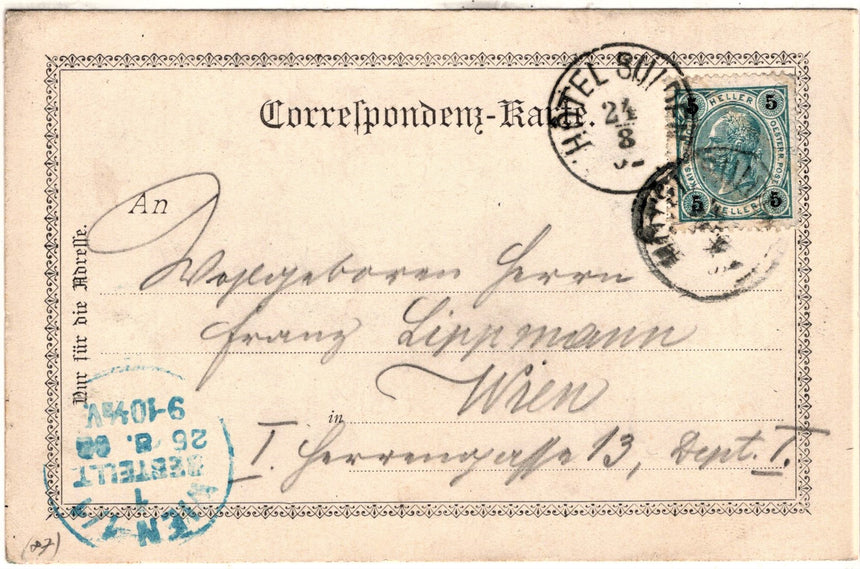 Correspondenz-Karte.
HOTEL SULDEN
24
8
5 HELLER 5
KAIS. OESTERR. POST
5 HELLER 5
An
Nur für die Adresse.
Wohlgeboren Herrn
Franz Lippmann
Wien
in
I. Herrengasse 13, Dept. I.
WIEN 1/1
1
BESTELLT
26. 8. 02
9-10½V
(87)